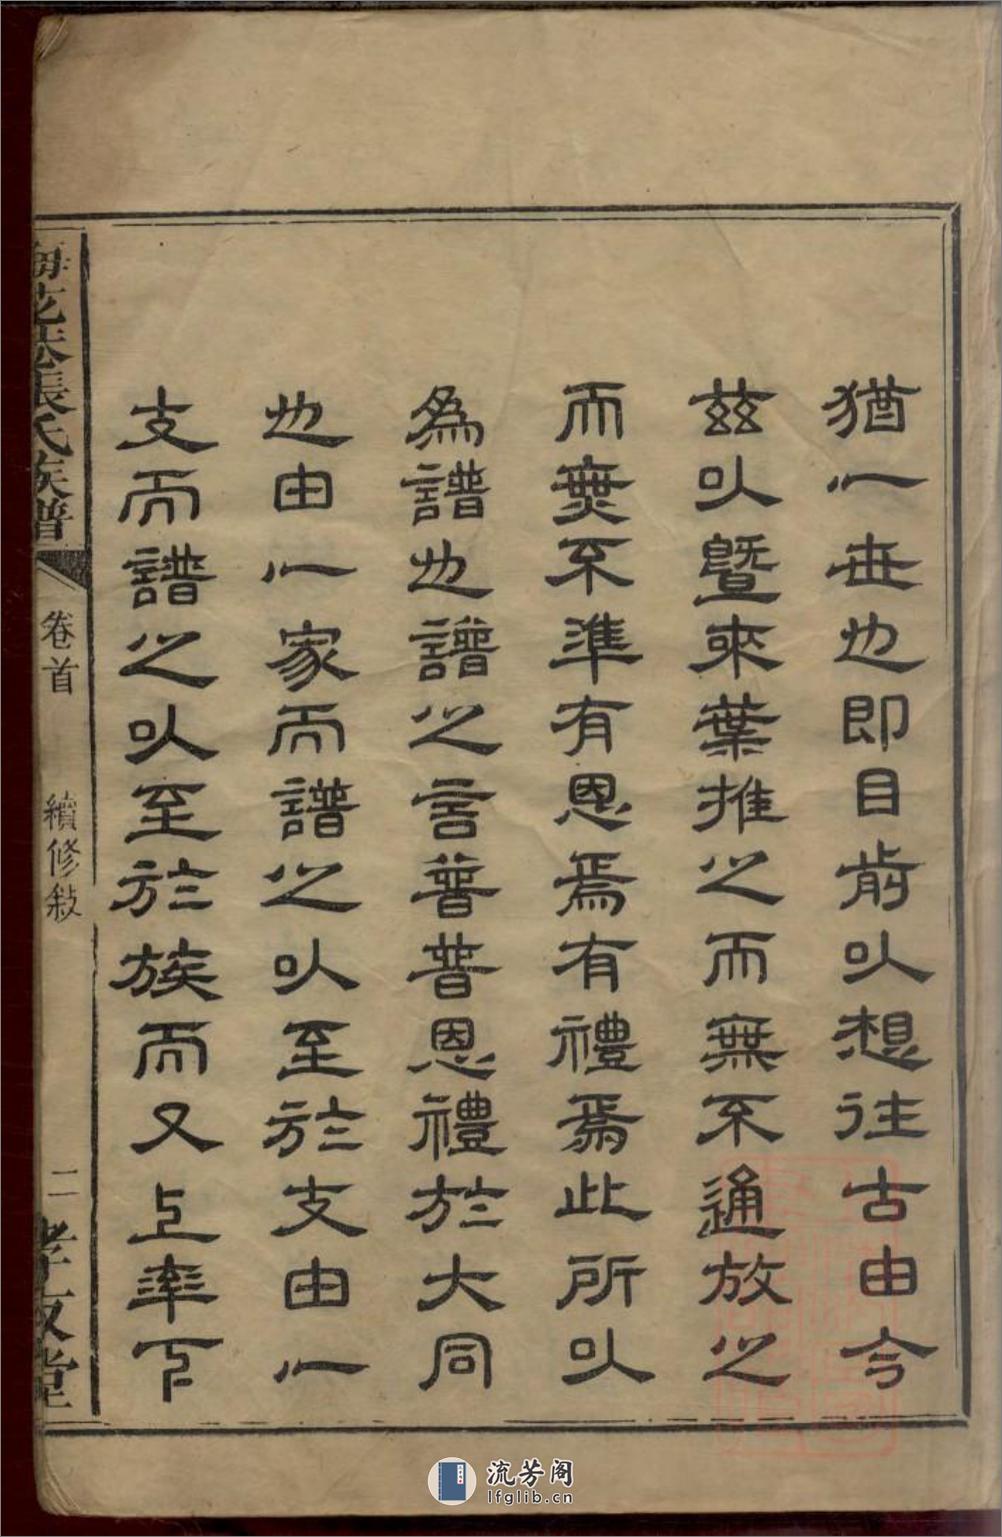 猶一世也即目前以想往古由今
茲以暨來葉推之而無不通放之
而無不準有恩焉有禮焉此所以
為譜也譜之言普普恩禮於大同
也由一家而譜之以至於支由一
支而譜之以至於族而又上率下
張氏族譜
卷首
續修敍
二
孝友堂
流芳阁
lfglib.cn